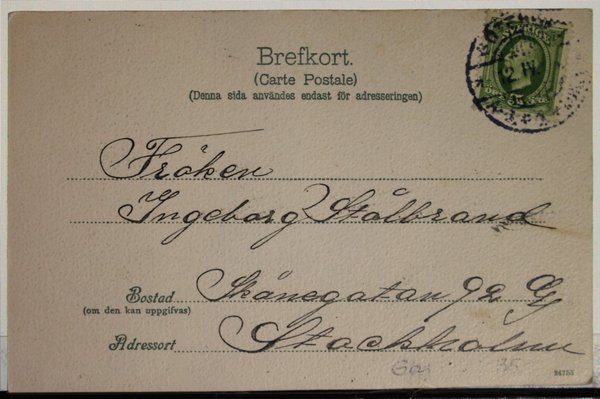 Brefkort.
(Carte Postale)
(Denna sida användes endast för adresseringen)
SVERIGE
Fröken
Ingeborg Stålbrand
Bostad Skånegatan 92 G
(om den kan uppgifvas)
Adressort Stockholm
24753